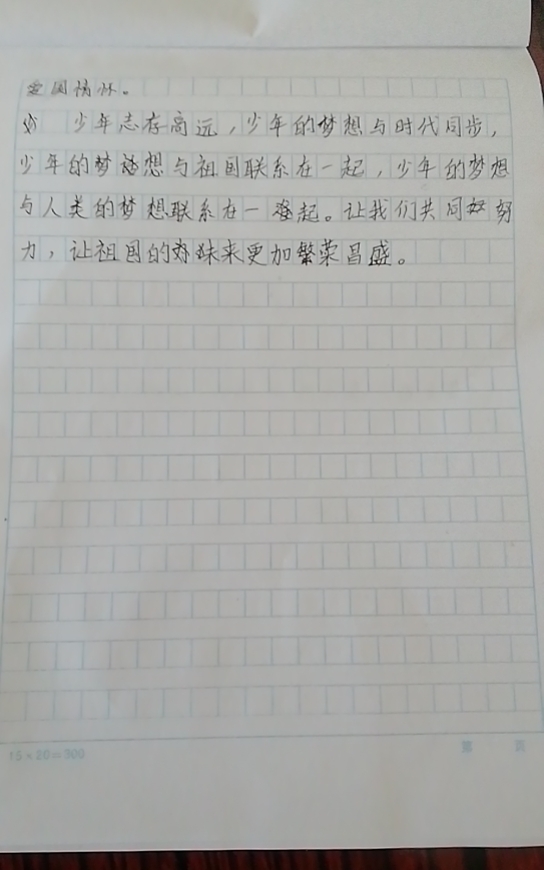 爱国情怀。
少年志存高远，少年的梦想与时代同步，
少年的梦想与祖国联系在一起，少年的梦想
与人类的梦想联系在一起。让我们共同努
力，让祖国的未来更加繁荣昌盛。
15×20=300
第 页